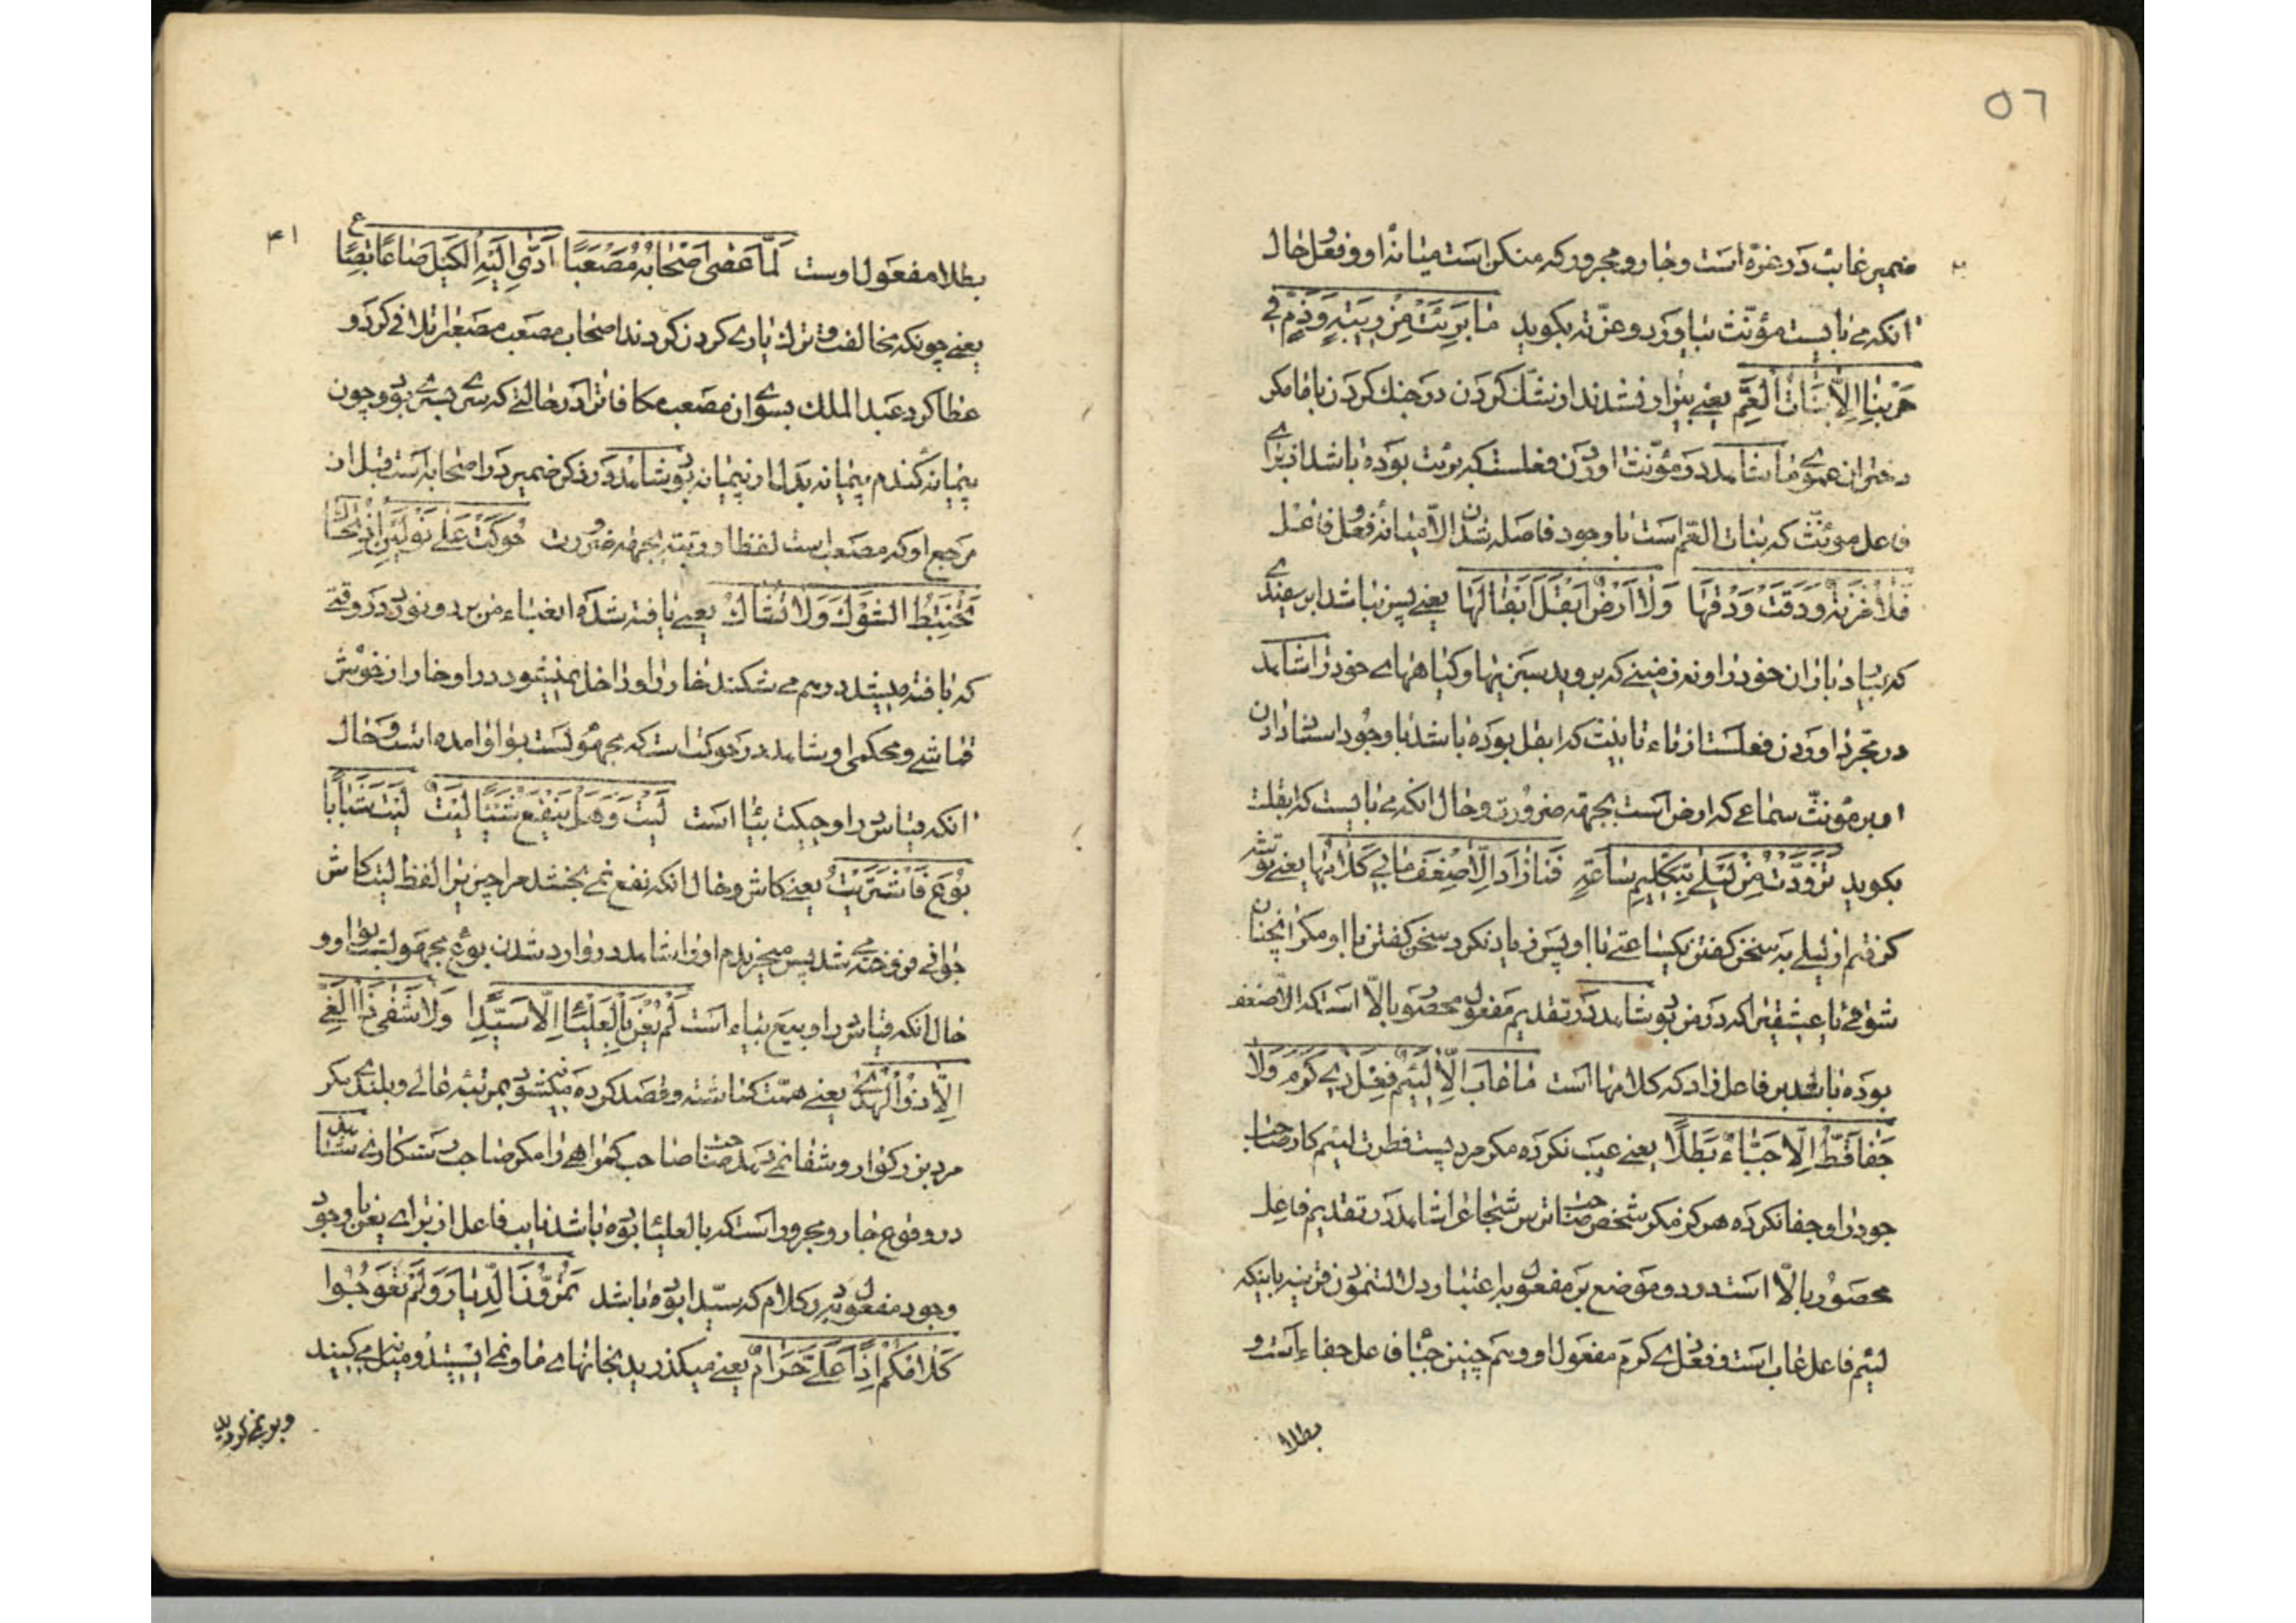 ٥٦
ضمیر غایب در غرّه است و جار و مجرور که منکن است میانهٔ او و فعل حال
انکه می بایست مؤنّث بیاورد و عزّته بکوید مَا بَرِئَتْ مِنْ رِیبَةٍ وَذَمٍّ فِی
حَرْبِنَا اِلاَّ بَنَاتُ الْعَمِّ یعنی بیزار نشدند از شک کردن در جنک کردن با ما مکر
دختران عموی ما شاهد در مؤنّث اوردن فعلست که برئت بوده باشد از برای
فاعل مؤنّث که بنات العم است با وجود فاصله شدن الّا میانهٔ فعل و فاعل
فَلَا مُزْنَةٌ وَدَقَتْ وَدْقَهَا وَلَا اَرْضَ اَبْقَلَ اِبْقَالَهَا یعنی پس نباشد ابر سفیدی
که ببارد باران خود را و نه زمینی که بروید سبزیها و کیاههای خود را شاهد
در مجرد اوردن فعلست از تاء تانیث که ابقل بوده باشد با وجود اسناد دادن
او بر مؤنّث سماعی که ارض است بجهة ضرورت و حال انکه می بایست که ابقلت
بکوید تَزَوَّدْتُ مِنْ لَیْلَی بِتَکْلِیمِ سَاعَةٍ فَمَا زَادَ اِلَّا ضِعْفَ مَا بِی کَلَامُهَا یعنی توشه
کرفتم از لیلی به سخن کفتن یکساعتی با او پس زیاد نکرد سخن کفتن با او مکر انچنان
شوقی با عشقیرا که در من بود شاهد در تقدیم مفعول محصور بالّا است که الّا ضعف
بوده باشد بر فاعل زاد که کلامها است مَا عَابَ اِلَّا لَئِیمٌ فِعْلَ ذِی کَرَمٍ وَلَا
جَفَا قَطُّ اِلَّا جُبَّاءٌ بَطَلًا یعنی عیب نکرده مکر مرد پست فطرت لئیم کار صاحب
جود را و جفا نکرده هرکز مکر شخص صاحب ترس شجاعی را شاهد در تقدیم فاعل
محصور بالّا است در دو موضع بر مفعول به اعتبار دلالت نمودن قرینه باینکه
لئیم فاعل عاب است و فعل ذی کرم مفعول او و هم چنین جبّا فاعل جفاء است و
بطلا
۴۱
بطلا مفعول اوست لَمَّا عَصَی اَصْحَابُهُ مُصْعَبًا اَدَّی اِلَیْهِ الْکَیْلَ صَاعًا بِصَاعٍ
یعنی چونکه مخالفت و ترک یاری کردن کردند اصحاب مصعب مصعب را تلافی کرد و
عطا کرد عبد الملک بسوی ان مصعب مکافات را در حالتی که سری بسری بود چون
پیمانه کندم پیمانه بدل از پیمانه بود شاهد در ذکر ضمیر در اصحابه است قبل از
مرجع او که مصعب است لفظا و رتبة بجهة ضرورت حُوکَتْ عَلَی نَوْلَیْنِ اِذْ تُحَاکُ
تَخْتَبِطُ الشَّوْکَ وَلَا تُشَاکُ یعنی بافته شده ان عباء من بر دو نورد در وقتی
که بافته میشد در هم می شکند خار را و داخل نمیشود در او خار از خوش
قماشی و محکمی او شاهد در حوکت است که مجهولست بواو امده است و حال
انکه قیاس در او حیکت بیا است لَیْتَ وَهَلْ یَنْفَعُ شَیْئًا لَیْتُ لَیْتَ شَبَابًا
بُوعَ فَاشْتَرَیْتُ یعنی کاش و حال انکه نفع نمی بخشد مرا چیزیرا لفظ لیت کاش
جوانی فروخته می شد پس میخریدم او را شاهد در وارد شدن بوع مجهولست بواو و
حال انکه قیاس در او بیع بیاء است لَمْ یُعْنَ بِالْعَلْیَاءِ اِلَّا سَیِّدًا وَلَا شَفَی ذَا الْغَیِّ
اِلَّا ذُو الْهُدَی یعنی همت کماشته و قصد کرده نمیشود بمرتبه عالی و بلندی مکر
مرد بزرکوار و شفا نمی دهد صاحب کمراهی را مکر صاحب رستکاری شاهد
در وقوع جار و مجرور است که بالعلیا بوده باشد نایب فاعل از برای یعن با وجود
وجود مفعول به در کلام که سیّدا بوده باشد تَمُرُّونَ الدِّیَارَ وَلَمْ تَعُوجُوا
کَلَامُکُمُ اِذًا عَلَیَّ حَرَامٌ یعنی میکذرید بخانهای ما و نمی ایستید و میل نمی کنید